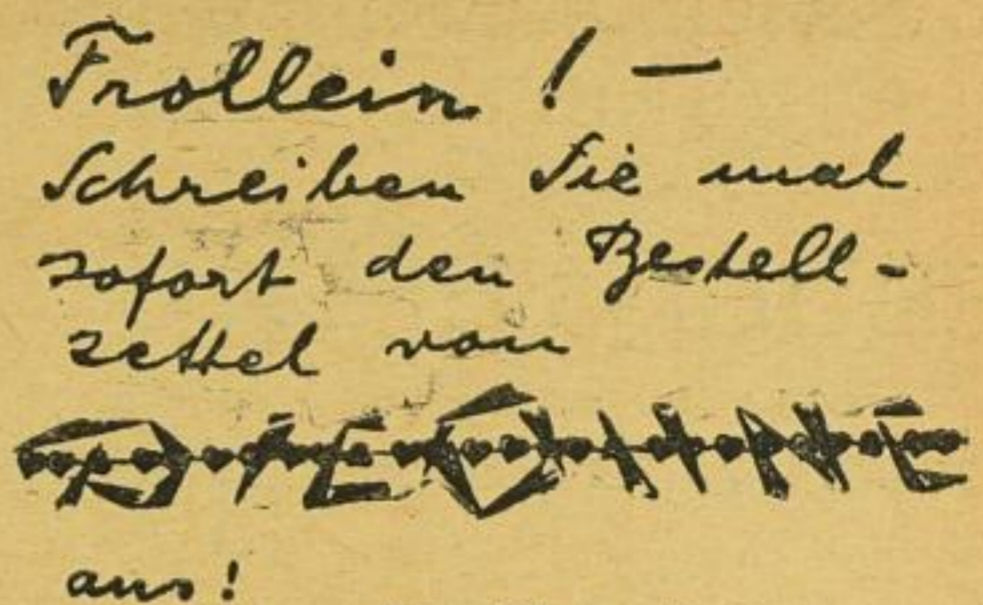 Frollein! —
Schreiben Sie mal
sofort den Bestell-
zettel von
DIE DÜHNE
aus!